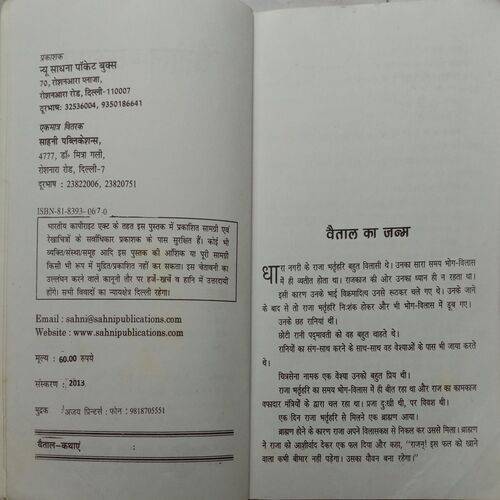 प्रकाशक
न्यू साधना पॉकेट बुक्स
70, रोशनआरा प्लाजा,
रोशनआरा रोड, दिल्ली-110007
दूरभाष: 32536004, 9350186641
एकमात्र वितरक
साहनी पब्लिकेशन्स,
4777, डॉ॰ मित्रा गली,
रोशनआरा रोड, दिल्ली-7
दूरभाष : 23822006, 23820751
ISBN-81-8393-067-0
भारतीय कापीराइट एक्ट के तहत इस पुस्तक में प्रकाशित सामग्री एवं
रेखाचित्रों के सर्वाधिकार प्रकाशक के पास सुरक्षित हैं। कोई भी
व्यक्ति/संस्था/समूह आदि इस पुस्तक की आंशिक या पूरी सामग्री
किसी भी रूप में मुद्रित/प्रकाशित नहीं कर सकता। इस चेतावनी का
उल्लंघन करने वाले कानूनी तौर पर हर्जे-खर्चे व हानि में उत्तरदायी
होंगे। सभी विवादों का न्यायक्षेत्र दिल्ली रहेगा।
Email : sahni@sahnipublications.com
Website : www.sahnipublications.com
मूल्य : 60.00 रुपये
संस्करण : 2013
मुद्रक : अजय प्रिन्टर्स : फोन : 9818705551
वैताल-कथाएं
वैताल का जन्म
धारा नगरी के राजा भर्तृहरि बहुत विलासी थे। उनका सारा समय भोग-विलास
में ही व्यतीत होता था। राजकाज की ओर उनका ध्यान ही न रहता था।
इसी कारण उनके भाई विक्रमादित्य उनसे रूठकर चले गए थे। उनके जाने
के बाद से तो राजा भर्तृहरि नि:शंक होकर और भी भोग-विलास में डूब गए।
उनके छह रानियां थीं।
छोटी रानी पद्मावती को वह बहुत चाहते थे।
रानियों का संग-साथ करने के साथ-साथ वह वेश्याओं के पास भी जाया करते
थे।
चित्रसेना नामक एक वेश्या उनकी बहुत प्रिय थी।
राजा भर्तृहरि का समय भोग-विलास में ही बीत रहा था और राज का कामकाज
वफादार मंत्रियों के द्वारा चल रहा था। प्रजा दु:खी थी, पर विवश थी।
एक दिन राजा भर्तृहरि से मिलने एक ब्राह्मण आया।
ब्राह्मण होने के कारण राजा अपने विलासकक्ष से निकल कर उससे मिला। ब्राह्मण
ने राजा को आशीर्वाद देकर एक फल दिया और कहा, "राजन्! इस फल को खाने
वाला कभी बीमार नहीं पड़ेगा। उसका यौवन बना रहेगा।"